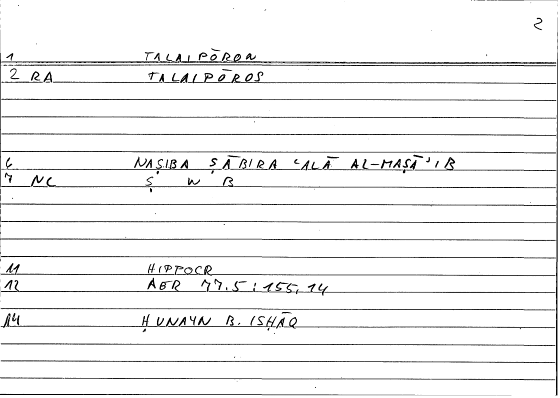 2
1 TALAIPŌRON
2 RA TALAIPŌROS
6 NAṢIBA ṢĀBIRA ʿALĀ AL-MAṢĀʾIB
7 NC Ṣ W B
11 HIPPOCR
12 AER 77.5 : 155,14
14 ḤUNAYN B. ISḤĀQ